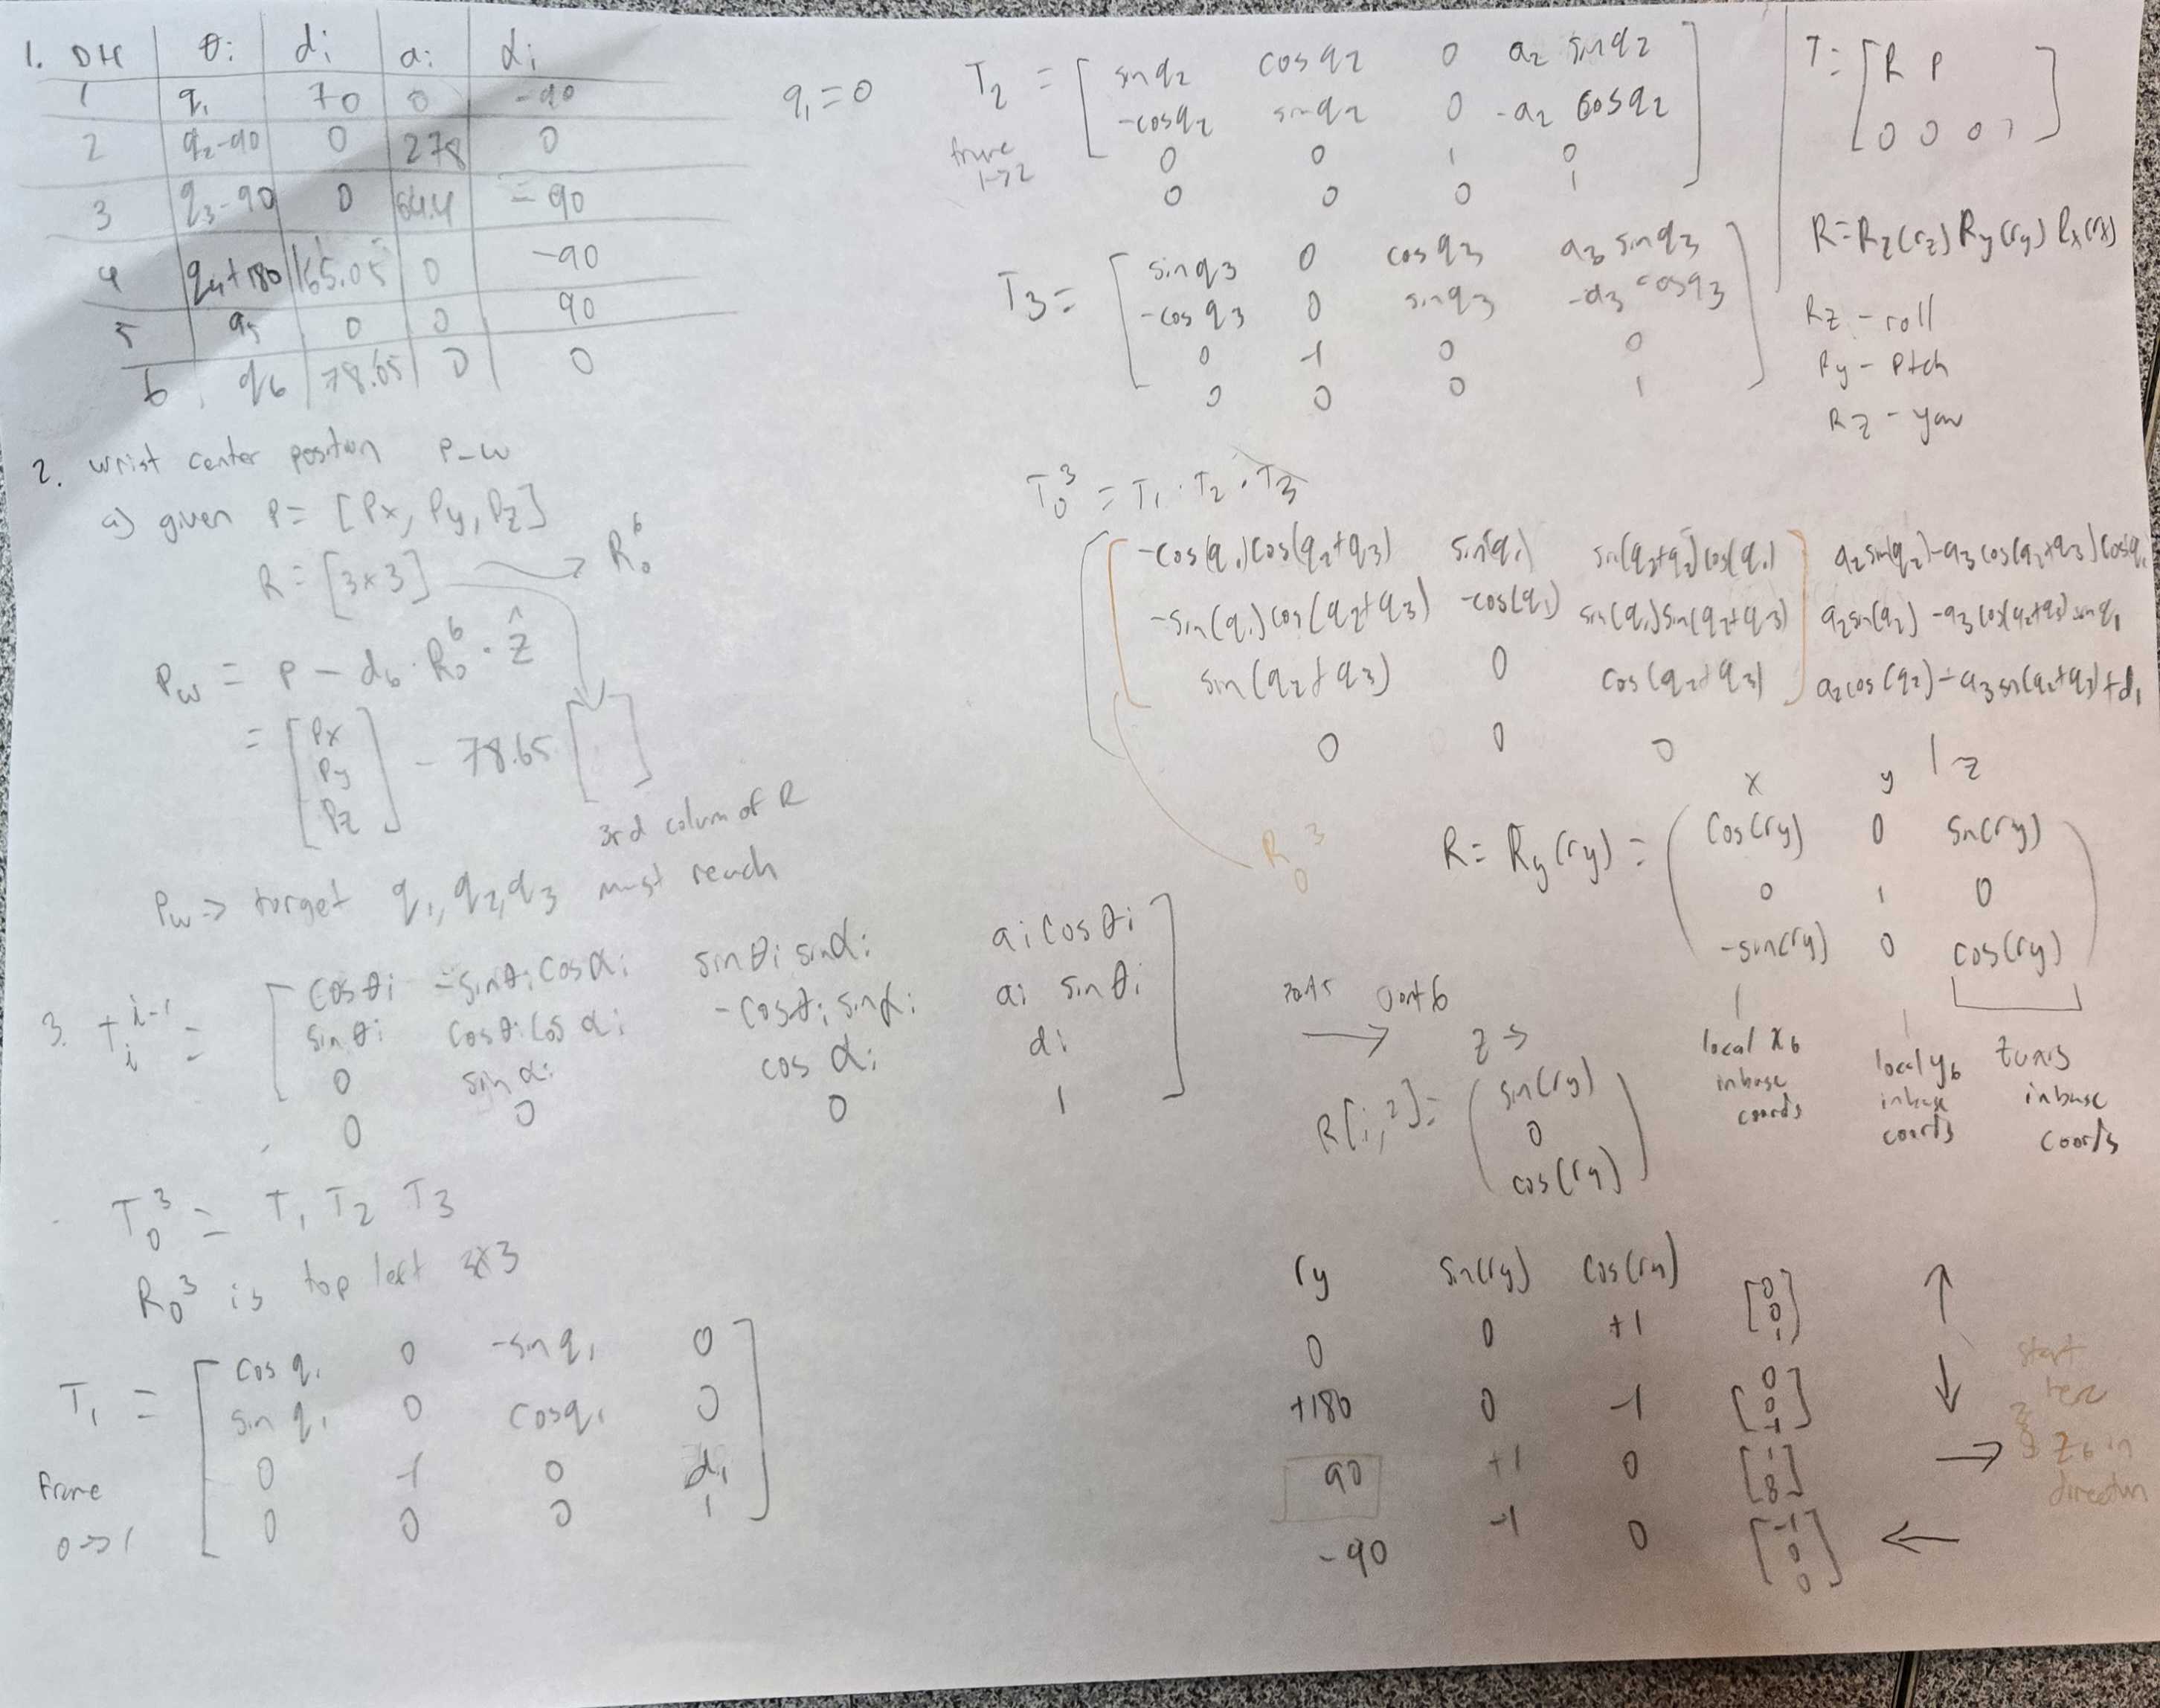 1. DH | θi | di | ai | αi
1 | q1 | 70 | 0 | -90
2 | q2-90 | 0 | 278 | 0
3 | q3-90 | 0 | 64.4 | -90
4 | q4+180 | 165.05 | 0 | -90
5 | q5 | 0 | 0 | 90
6 | q6 | 78.65 | 0 | 0
2. wrist center position P_w
a) given P = [Px, Py, Pz]
R = [3x3] → R0^6
Pw = P - d6 · R0^6 · ẑ
= [Px Py Pz] - 78.65 [ ]
3rd column of R
Pw => target q1, q2, q3 must reach
3. T i^i-1 =
cosθi -sinθi cosαi sinθi sinαi ai cosθi
sinθi cosθi cosαi -cosθi sinαi ai sinθi
0 sinαi cosαi di
0 0 0 1
T0^3 = T1 T2 T3
R0^3 is top left 3x3
T1 =
cosq1 0 -sinq1 0
sinq1 0 cosq1 0
0 -1 0 d1
0 0 0 1
frame
0->1
q1=0
T2 =
sinq2 cosq2 0 a2 sinq2
-cosq2 sinq2 0 -a2 cosq2
0 0 1 0
0 0 0 1
frame
1->2
T3 =
sinq3 0 cosq3 a3 sinq3
-cosq3 0 sinq3 -a3 cosq3
0 -1 0 0
0 0 0 1
T0^3 = T1 · T2 · T3
-cos(q1)cos(q2+q3) sin(q1) sin(q2+q3)cos(q1) a2sin(q2)-a3cos(q2+q3)cosq1
-sin(q1)cos(q2+q3) -cos(q1) sin(q1)sin(q2+q3) a2sin(q2)-a3cos(q2+q3)sinq1
sin(q2+q3) 0 cos(q2+q3) a2cos(q2)+a3sin(q2+q3)+d1
0 0 0 1
R0^3
T= [R P
0 0 0 1]
R=Rz(rz) Ry(ry) Rx(rx)
Rz - roll
Ry - pitch
Rz - yaw
x y z
R= Ry(ry) =
cos(ry) 0 sin(ry)
0 1 0
-sin(ry) 0 cos(ry)
local x6
in base
coords
local y6
in base
coords
z axis
in base
coords
joint 5 → joint 6
z →
R[:,2]=
sin(ry)
0
cos(ry)
ry sin(ry) cos(ry)
0 0 +1 [0 0 1] ↑
+180 0 -1 [0 0 -1] ↓
90 +1 0 [1 0] →
-90 -1 0 [-1 0 0] ←
start
here
z6 in
direction